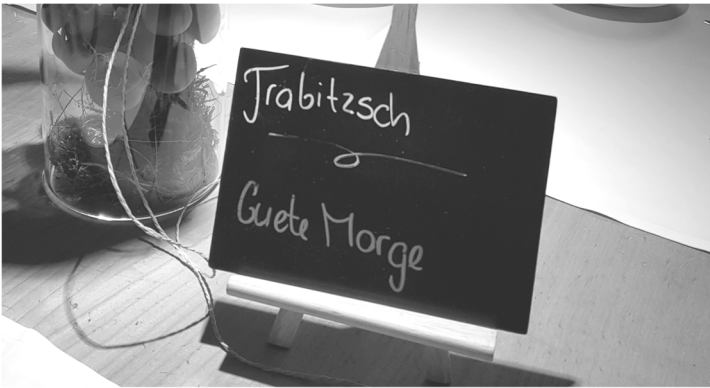 Trabitzsch
Guete Morge